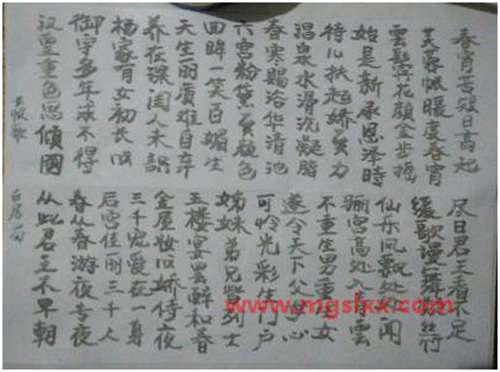 长恨歌
白居易
汉皇重色思傾國
御宇多年求不得
杨家有女初长成
养在深闺人未識
天生丽质难自弃
回眸一笑百媚生
六宫粉黛無颜色
春寒赐浴华清池
温泉水滑洗凝脂
侍儿扶起娇無力
始是新承恩泽時
雲鬓花颜金步摇
芙蓉帐暖度春宵
春宵苦短日高起
从此君王不早朝
春从春游夜专夜
后宫佳丽三千人
三千宠爱在一身
金屋妆成娇侍夜
玉楼宴罢醉和春
姊妹弟兄皆列士
可怜光彩生门户
遂令天下父母心
不重生男重生女
骊宫高处入青雲
仙乐风飘处处闻
缓歌谩舞凝丝竹
尽日君王看不足
www.mgslxx.com